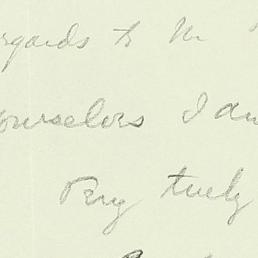 regards to Mr
yourselves I am
Very truly